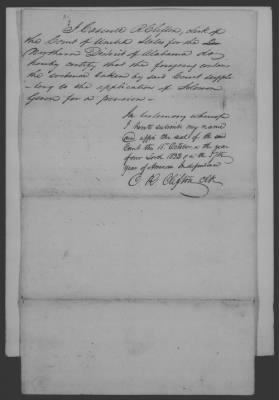 I Caswell R Clifton, Clerk of
the Court of United States for the
Northern District of Alabama do
hereby certify that the foregoing contains
the testimony taken by said Court
to the application of Solomon
Green for a pension —
In testimony whereof
I hereto subscribe my name
and affix the seal of the said
Court this 15 October in the year
of our Lord 1832 & in the 57th
year of American Independence
C R Clifton Clk